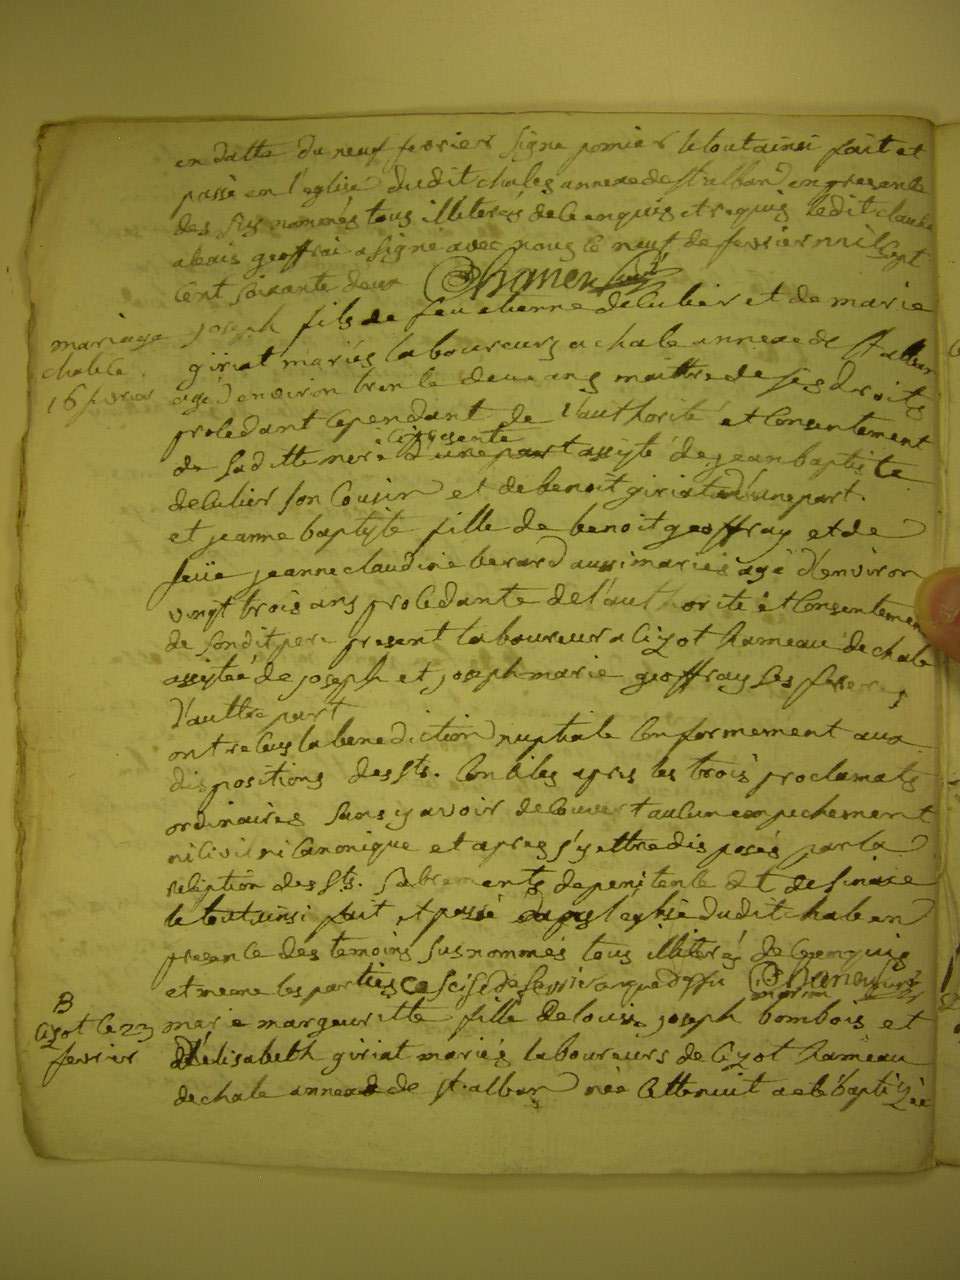 en datte du neuf fevrier signe pomier le tout ainsi fait et
passé en l'eglise dudit chales annexe de st alban en presence
des sus nommés tous illiterés de ce enquis et requis ledit claude
alexis geoffrai a signé avec nous le neuf de fevrier mil sept
cent soixante deux
mariage
chale le
16 fevrier
joseph fils de feu etienne decubier et de marie
giriat mariés laboureurs a chale annexe de st alban
agé d'environ trente deux ans maitre de ses droits
procedant cependant de l'authorité et consentement
de sa ditte mere cy presente d'une part assysté de jean baptiste
son cousin et de benoit giriat d'une part.
et jeanne baptyste fille de benoit geoffray et de
feüe jeanne claudine berard aussi mariés agé d'environ
vingt trois ans procedante de l'authorité et consentement
de son dit pere present laboureur a cizot hameau de chale
assystée de joseph et joseph marie geoffray ses freres
d'auttre part
ont recus la benediction nuptiale conformement aux
dispositions des sts. conciles apres les trois proclamats
ordinaires sans y avoir decouvert aucun empechement
ni civil ni canonique et apres s'y ettre disposés par la
reception des sts. sacrements de penitence et de
le tout ainsi fait et passé dans l'eglise dudit chale en
presence des temoins susnommés tous illiterés de ce enquis
et meme les parties ce seise de fevrier an que dessu
B
cizot le 23
fevrier
marie margueritte fille de louis joseph bombois et
d'élisabeth giriat mariés laboureurs de cizot hameau
de chale annexe de st. alban née cette nuit a eté baptizée